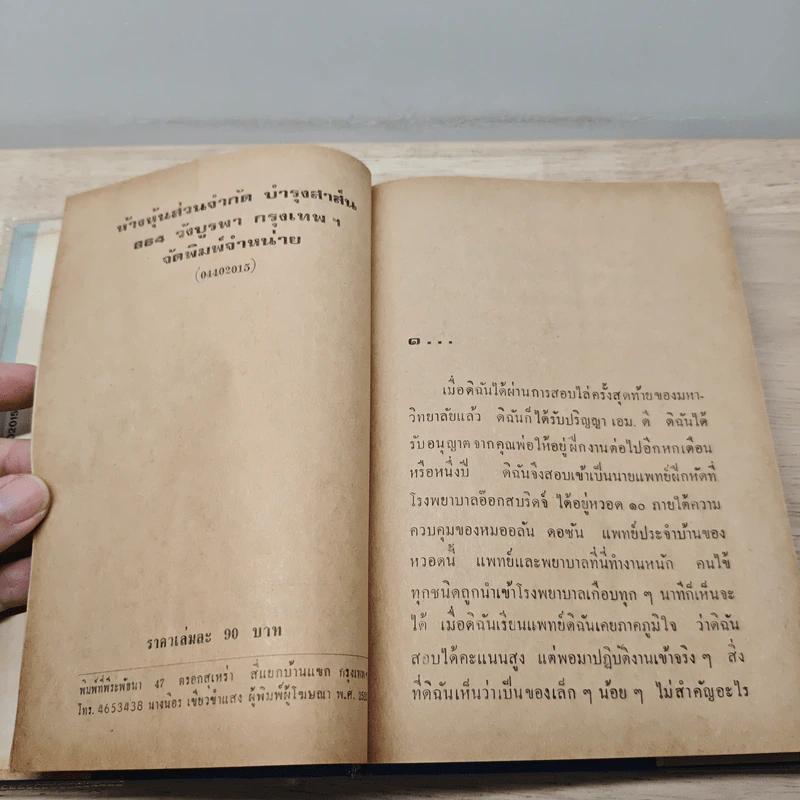 ห้างหุ้นส่วนจำกัด บำรุงสาส์น
664 วังบูรพา กรุงเทพ ฯ
จัดพิมพ์จำหน่าย
(04402015)
ราคาเล่มละ 90 บาท
พิมพ์ที่พีระพัธนา 47 ตรอกสุเหร่า สี่แยกบ้านแขก กรุงเทพฯ
โทร. 4653438 นางนิอร เขียวขำแสง ผู้พิมพ์ผู้โฆษณา พ.ศ.
๑...
เมื่อดิฉันได้ผ่านการสอบไล่ครั้งสุดท้ายของมหา-
วิทยาลัยแล้ว ดิฉันก็ได้รับปริญญา เอม. ดี ดิฉันได้
รับอนุญาตจากคุณพ่อให้อยู่ฝึกงานต่อไปอีกหกเดือน
หรือหนึ่งปี ดิฉันจึงสอบเข้าเป็นนายแพทย์ฝึกหัดที่
โรงพยาบาลอ๊อกสบริดจ์ ได้อยู่หวอด ๑๐ ภายใต้ความ
ควบคุมของหมออลัน ดอซัน แพทย์ประจำบ้านของ
หวอดนี้ แพทย์และพยาบาลที่นี่ทำงานหนัก คนไข้
ทุกชนิดถูกนำเข้าโรงพยาบาลเกือบทุก ๆ นาทีก็เห็นจะ
ได้ เมื่อดิฉันเรียนแพทย์ดิฉันเคยภาคภูมิใจ ว่าดิฉัน
สอบได้คะแนนสูง แต่พอมาปฏิบัติงานเข้าจริง ๆ สิ่ง
ที่ดิฉันเห็นว่าเป็นของเล็ก ๆ น้อย ๆ ไม่สำคัญอะไร
02015